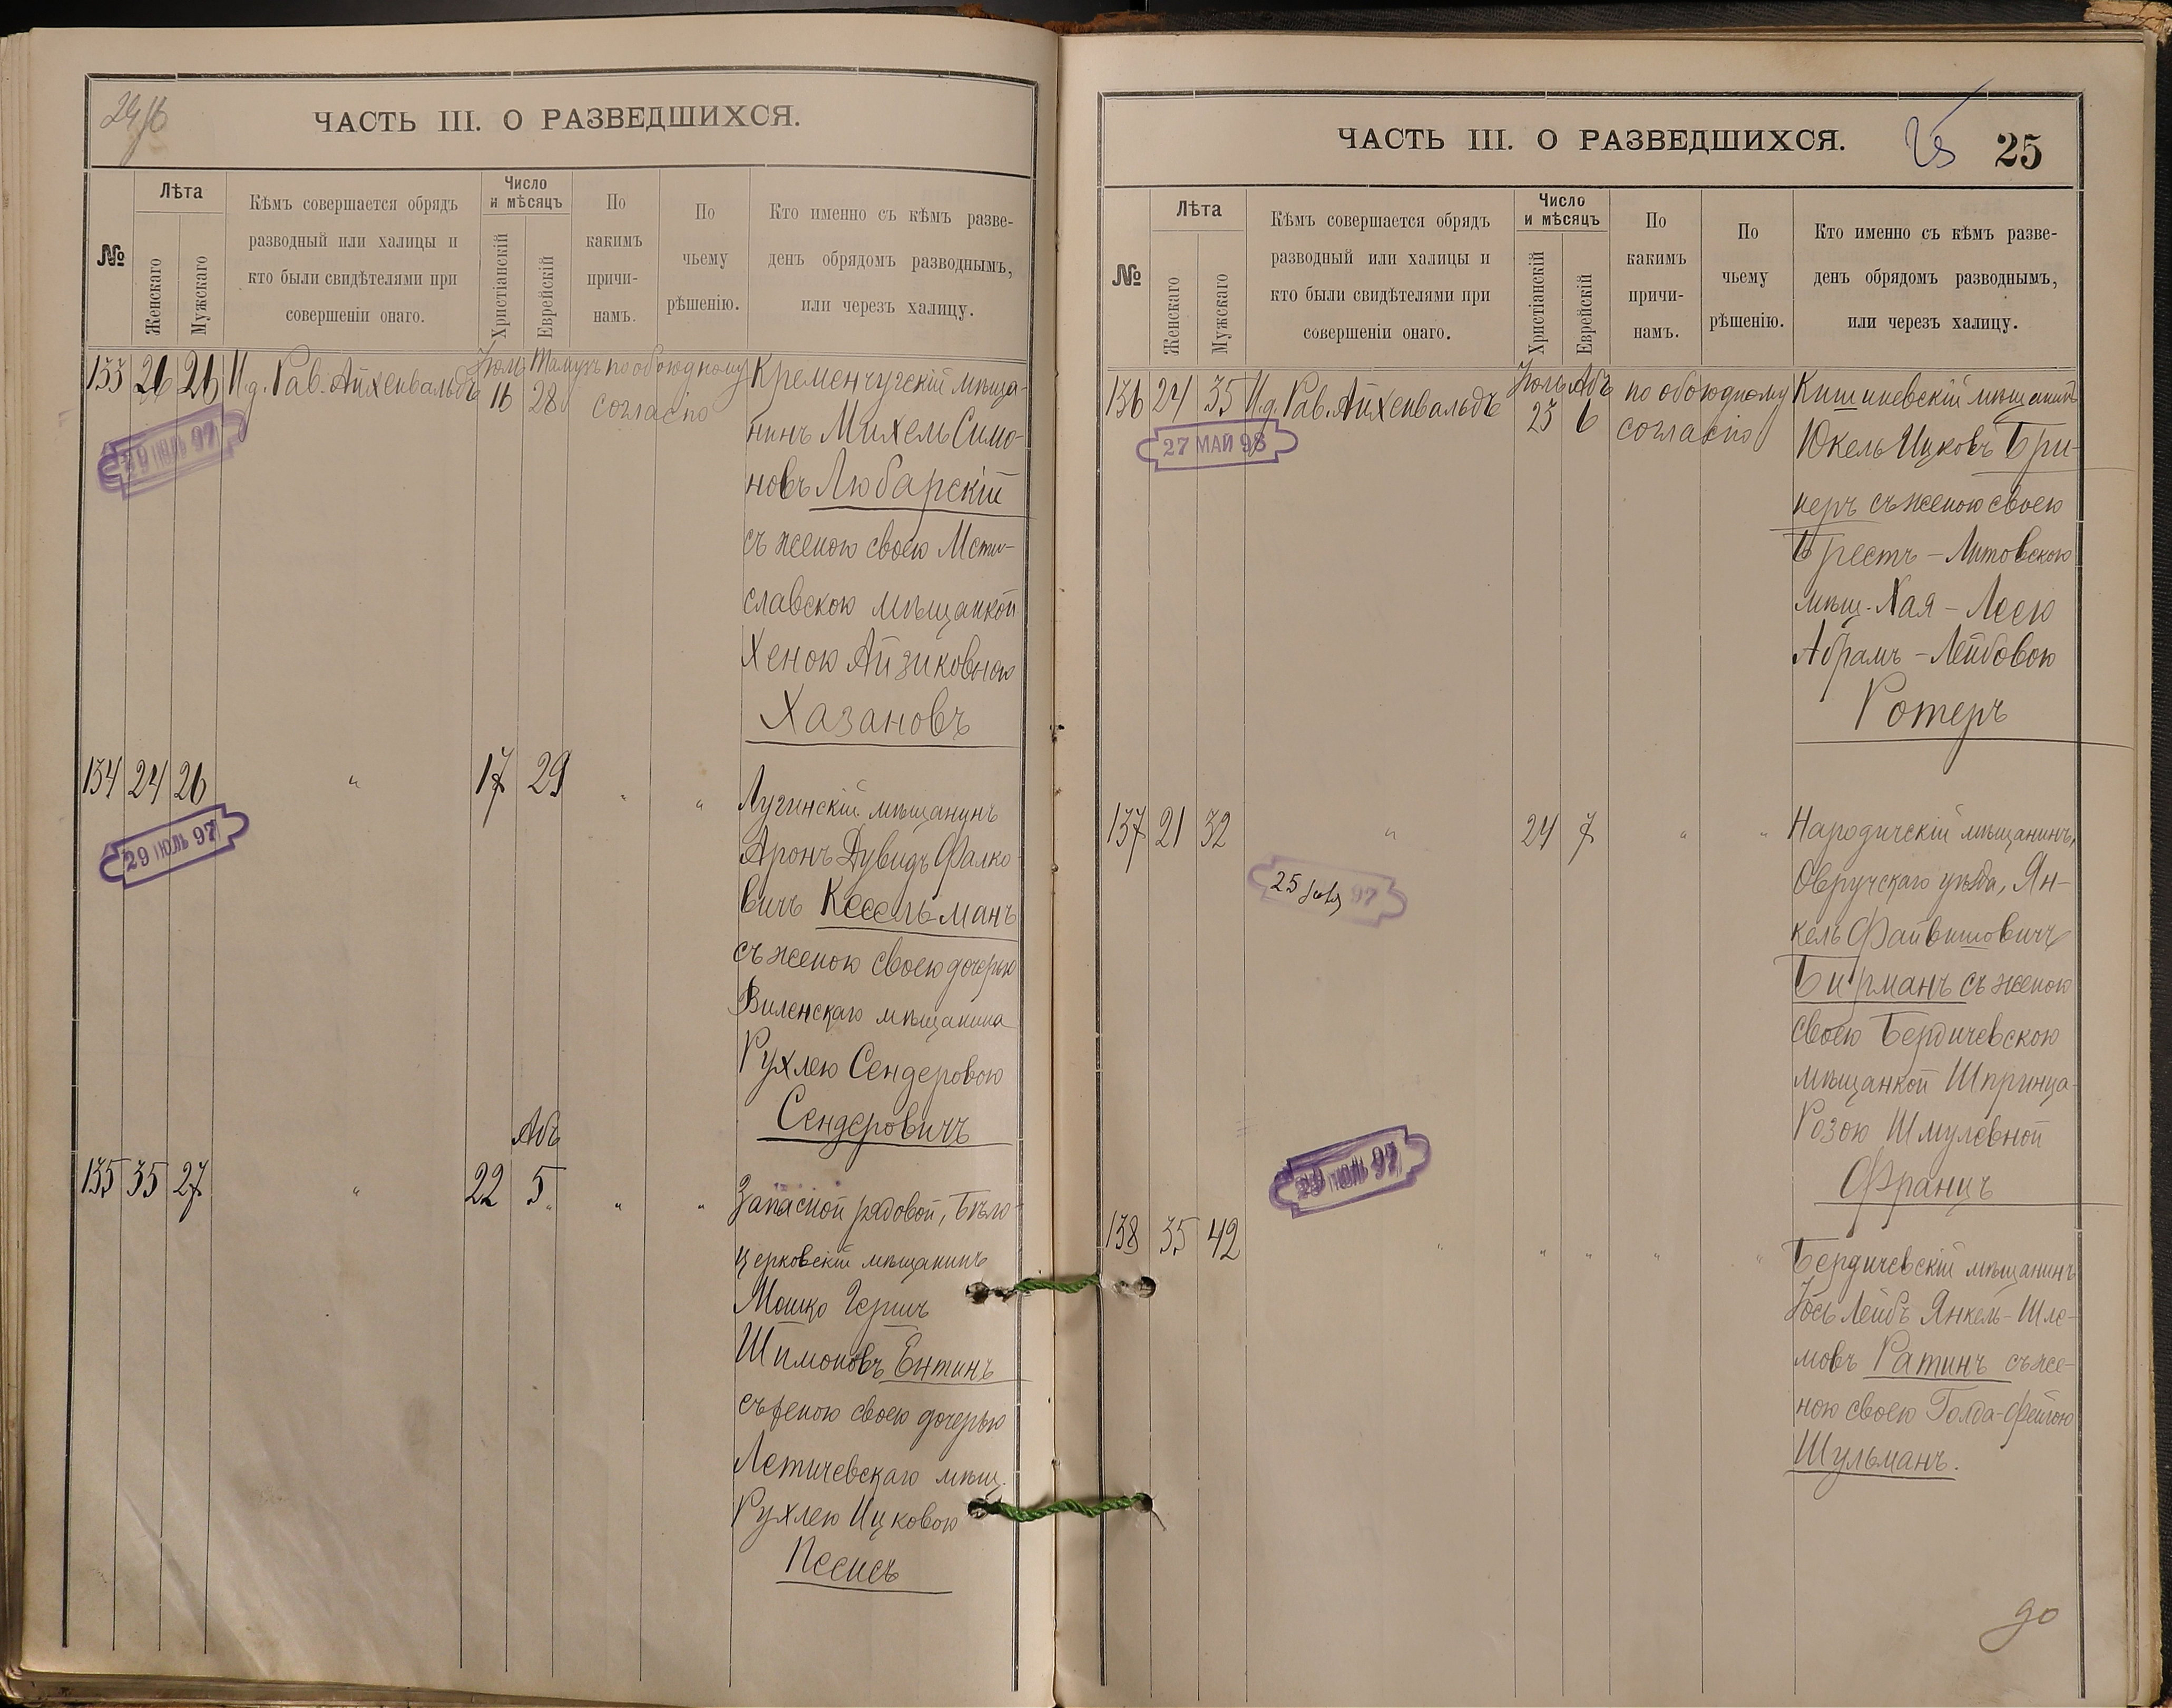 ЧАСТЬ III. О РАЗВЕДШИХСЯ.
№
Лѣта
Женскаго
Мужскаго
Кѣмъ совершается обрядъ
разводный или халицы и
кто были свидѣтелями при
совершеніи онаго.
Число
и мѣсяцъ
Христіанскій
Еврейскій
По
какимъ
причи-
намъ.
По
чьему
рѣшенію.
Кто именно съ кѣмъ разве-
денъ обрядомъ разводнымъ,
или черезъ халицу.
133 26 26 И.д. Рав. Айхенвальдъ Іюль 16 Тамузъ 28 по обоюдному
согласію
Кременчугскій мѣща-
нинъ Михель Симо-
новъ Любарскій
съ женою своею Мсти-
славскою мѣщанкой
Хеною Айзиковною
Хазановъ
29 ІЮЛЬ 97
134 24 26 " 17 29 " "
Лугинскій мѣщанинъ
Аронъ Дувидъ Фалко-
вичъ Кессельманъ
съ женою своею дочерью
Виленскаго мѣщанина
Рухлею Сендеровою
Сендеровичъ
29 ІЮЛЬ 97
Абъ
135 35 27 " 22 5 " "
Запасной рядовой, Бѣло-
церковскій мѣщанинъ
Мошко Гершъ
Шимоновъ Ентинъ
съ женою своею дочерью
Летичевскаго мѣщ.
Рухлею Ицковою
Песисъ
ЧАСТЬ III. О РАЗВЕДШИХСЯ.
25 25
№
Лѣта
Женскаго
Мужскаго
Кѣмъ совершается обрядъ
разводный или халицы и
кто были свидѣтелями при
совершеніи онаго.
Число
и мѣсяцъ
Христіанскій
Еврейскій
По
какимъ
причи-
намъ.
По
чьему
рѣшенію.
Кто именно съ кѣмъ разве-
денъ обрядомъ разводнымъ,
или черезъ халицу.
136 24 35 И.д. Рав. Айхенвальдъ Іюль 23 Абъ 6 по обоюдному
согласію
Кишиневскій мѣщанинъ
Юкель Ицковъ Бри-
неръ съ женою своею
Брестъ-Литовскою
мѣщ. Хая-Леею
Абрамъ-Лейбовою
Ротеръ
27 МАЙ 98
137 21 32 " 24 7 " "
Народичскій мѣщанинъ,
Овручскаго уѣзда, Ян-
кель Файвишовичъ
Бирманъ съ женою
своею Бердичевскою
мѣщанкой Шпринца-
Розою Шмулевной
Францъ
25 97
138 35 42 " " " " "
Бердичевскій мѣщанинъ
Іось Лейбъ Янкель-Шле-
мовъ Ратинъ съ же-
ною своею Голда-Фейгою
Шульманъ.
90